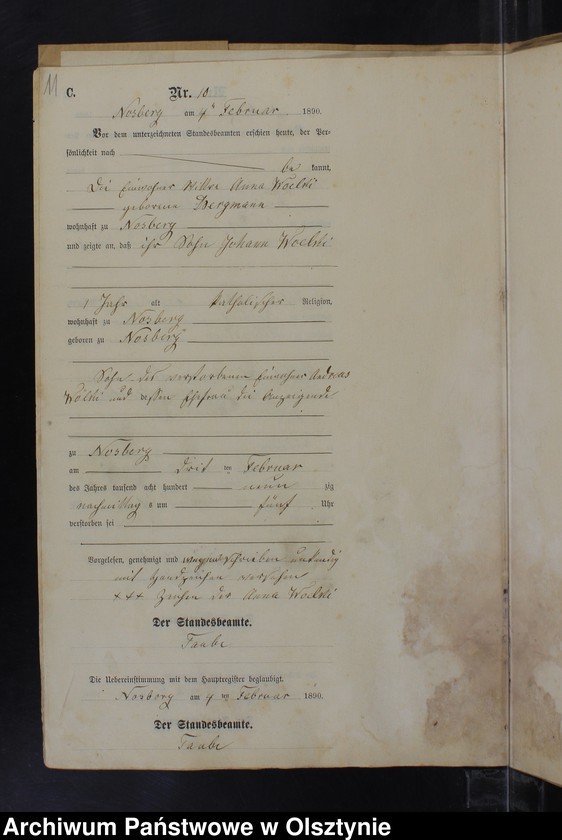 11
C. Nr. 10.
Nosberg am 4ᵗ Februar 1890.
Vor dem unterzeichneten Standesbeamten erschien heute, der Per-
sönlichkeit nach
be kannt,
Die Einwohner Wittwe Anna Woelki
geborene Bergmann
wohnhaft zu Nosberg
und zeigte an, daß ihr Sohn Johann Woelki
1 Jahr alt katholischer Religion,
wohnhaft zu Nosberg
geboren zu Nosberg
Sohn des verstorbenen Einwohner Andreas
Wölki und dessen Ehefrau die Anzeigende
zu Nosberg
am drit ten Februar
des Jahres tausend acht hundert neun zig
nachmittag s um fünf Uhr
verstorben sei
Vorgelesen, genehmigt und wegen schreiben unkundig
mit Handzeichen versehen
+++ Zeichen der Anna Woelki
Der Standesbeamte.
Taube
Die Uebereinstimmung mit dem Hauptregister beglaubigt.
Nosberg am 4 ten Februar 1890.
Der Standesbeamte.
Taube
Archiwum Państwowe w Olsztynie